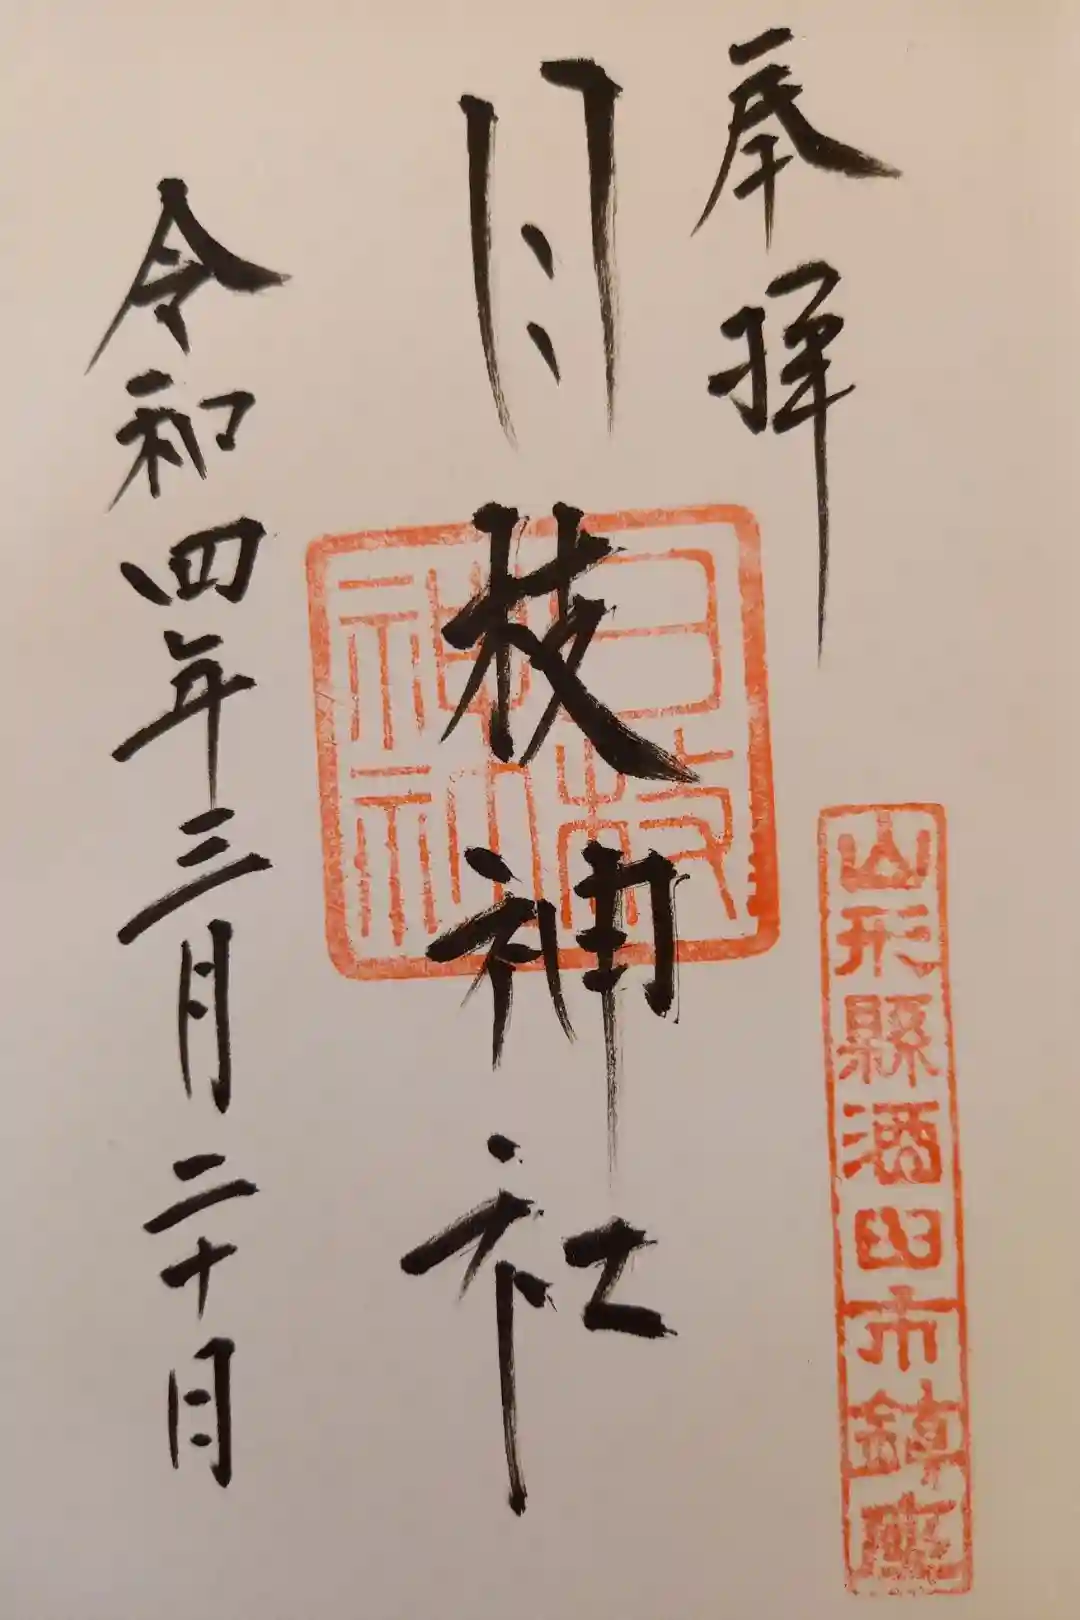 奉拝
山形縣酒田市鎮座
日枝神社
日枝神社
令和四年三月二十日